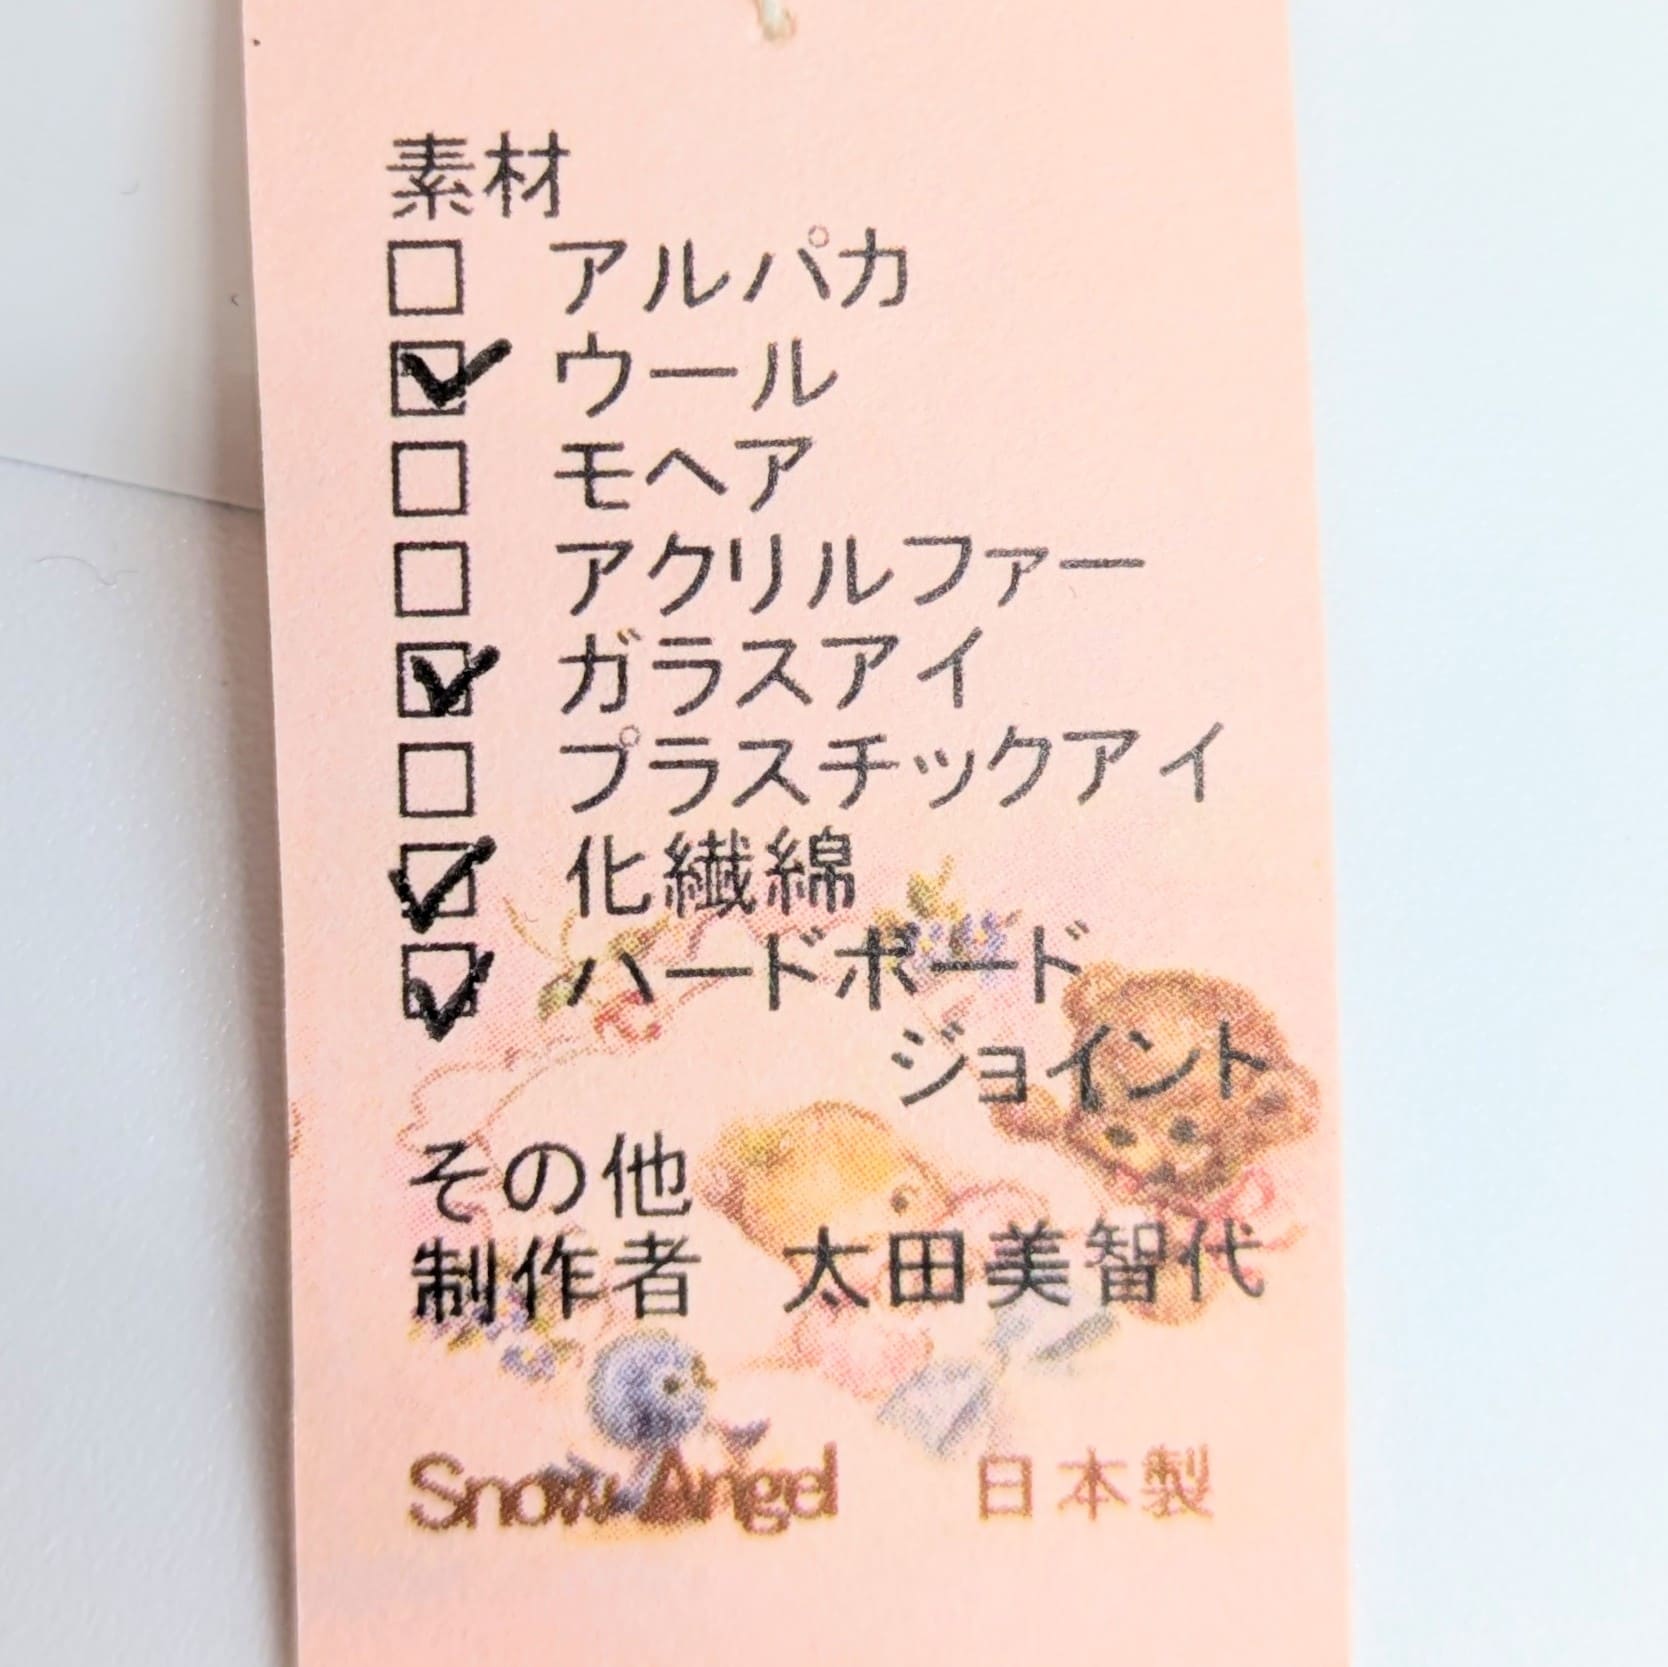 素材
□ アルパカ
☑ ウール
□ モヘア
□ アクリルファー
☑ ガラスアイ
□ プラスチックアイ
☑ 化繊綿
☑ ハードボード
ジョイント
その他
制作者 太田美智代
Snow Angel 日本製